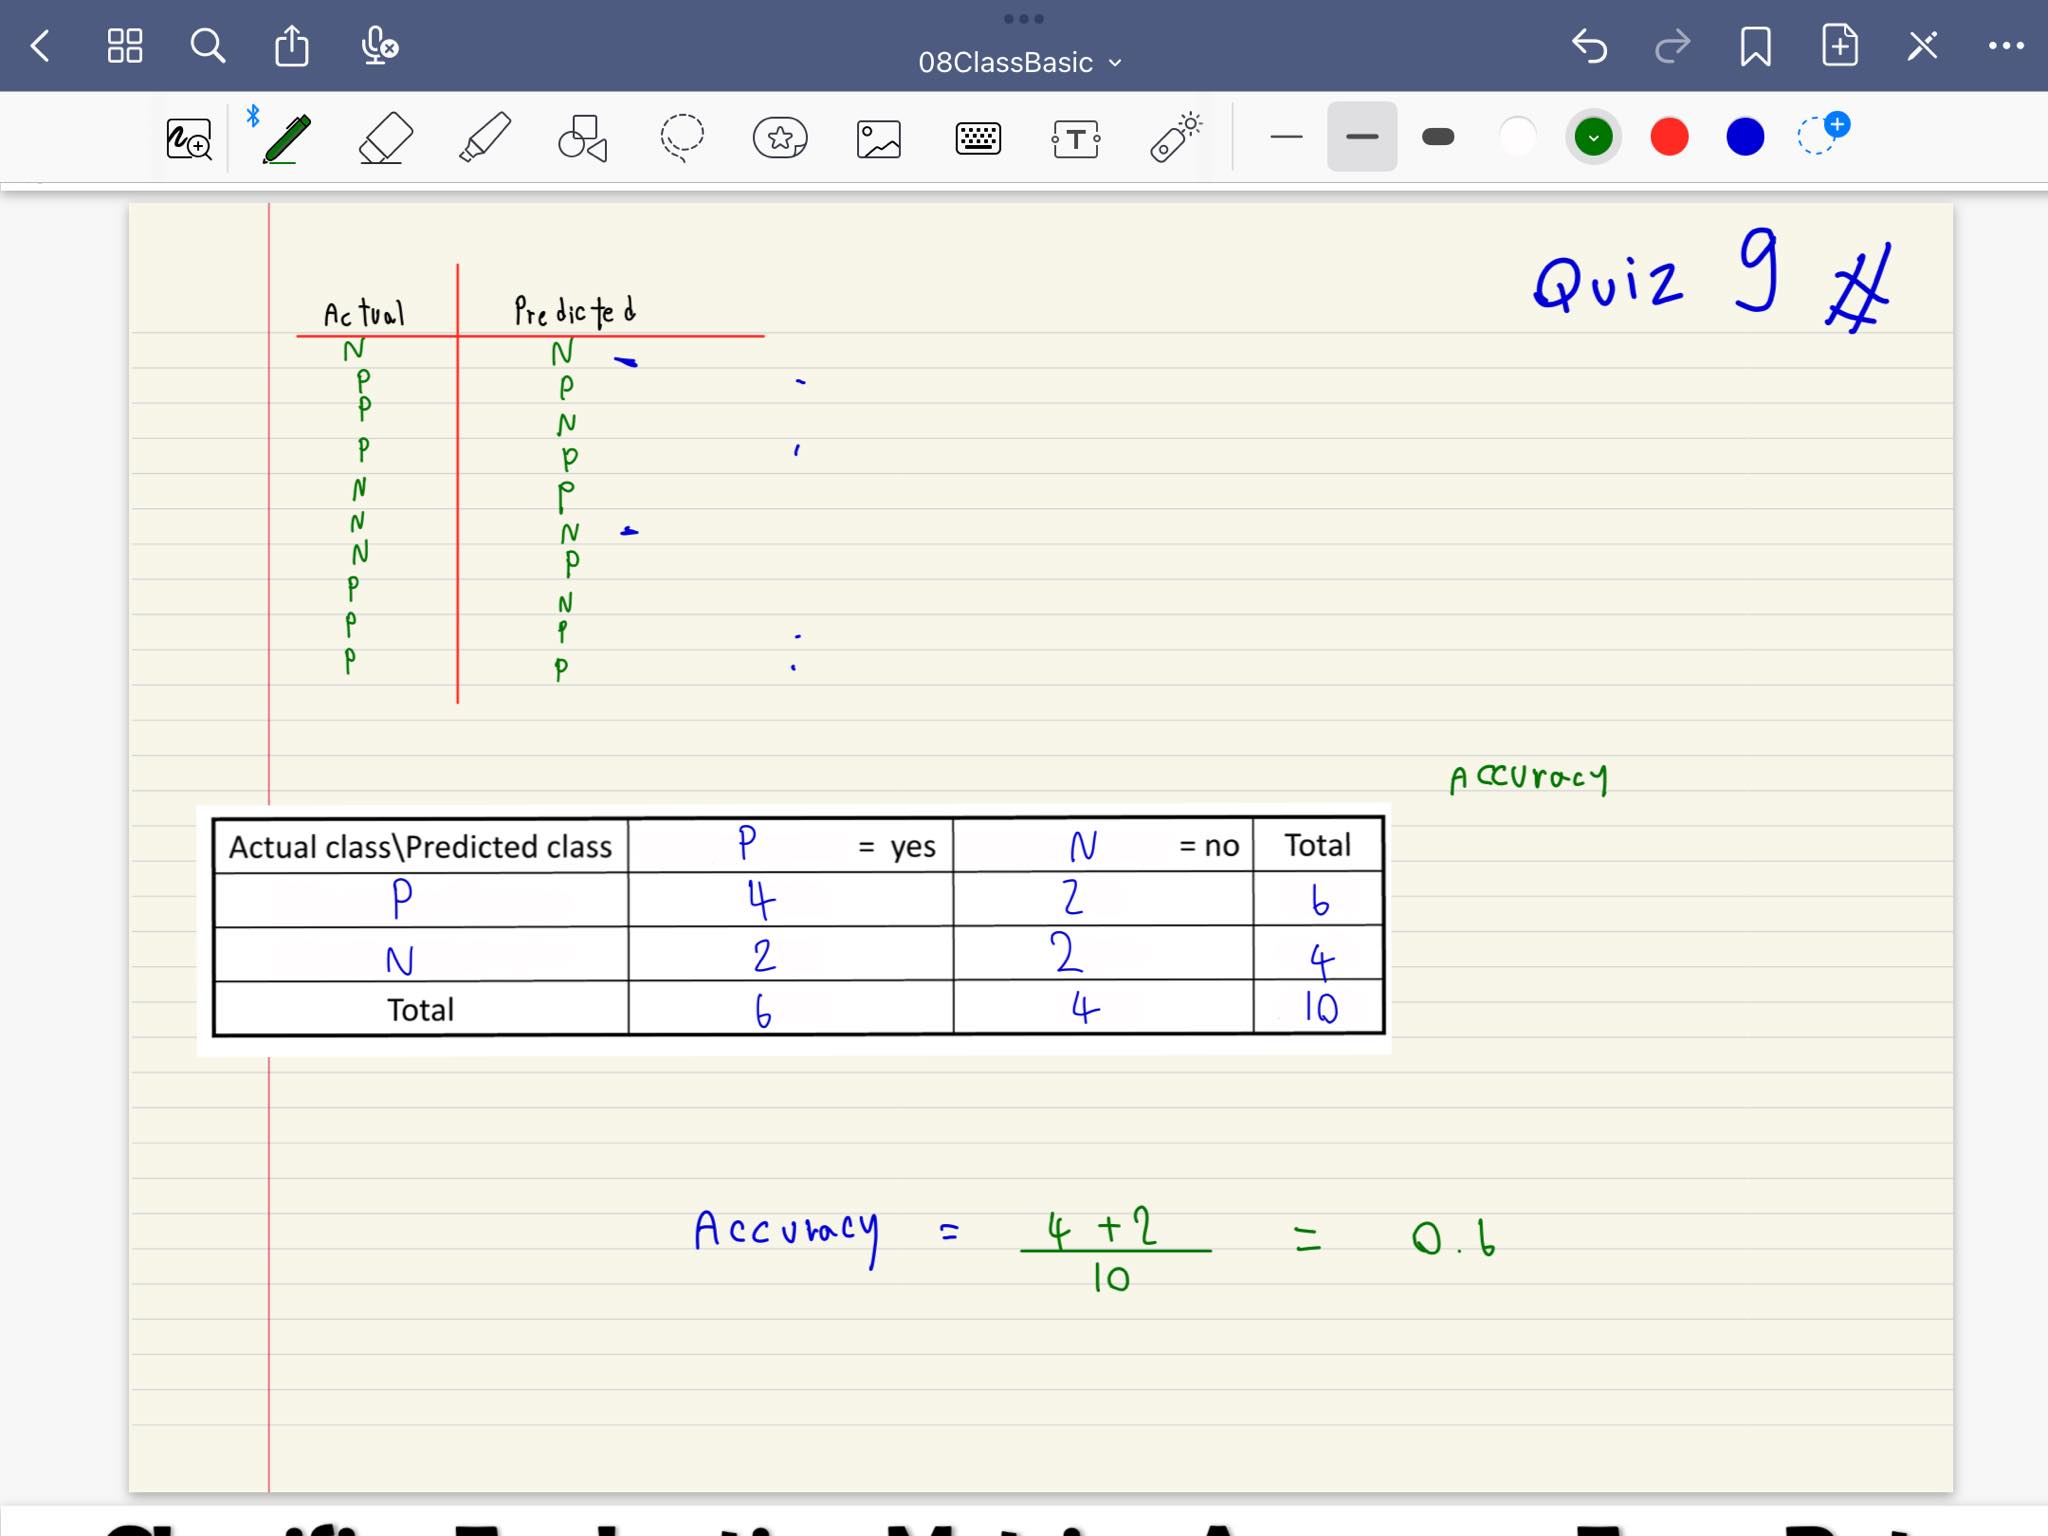 08ClassBasic
Quiz 9 #
Actual Predicted
N N
P P
P N
P P
N P
N N
N P
P N
P P
P P
Accuracy
Actual class\Predicted class P = yes N = no Total
P 4 2 6
N 2 2 4
Total 6 4 10
Accuracy = 4 + 2 = 0.6
10